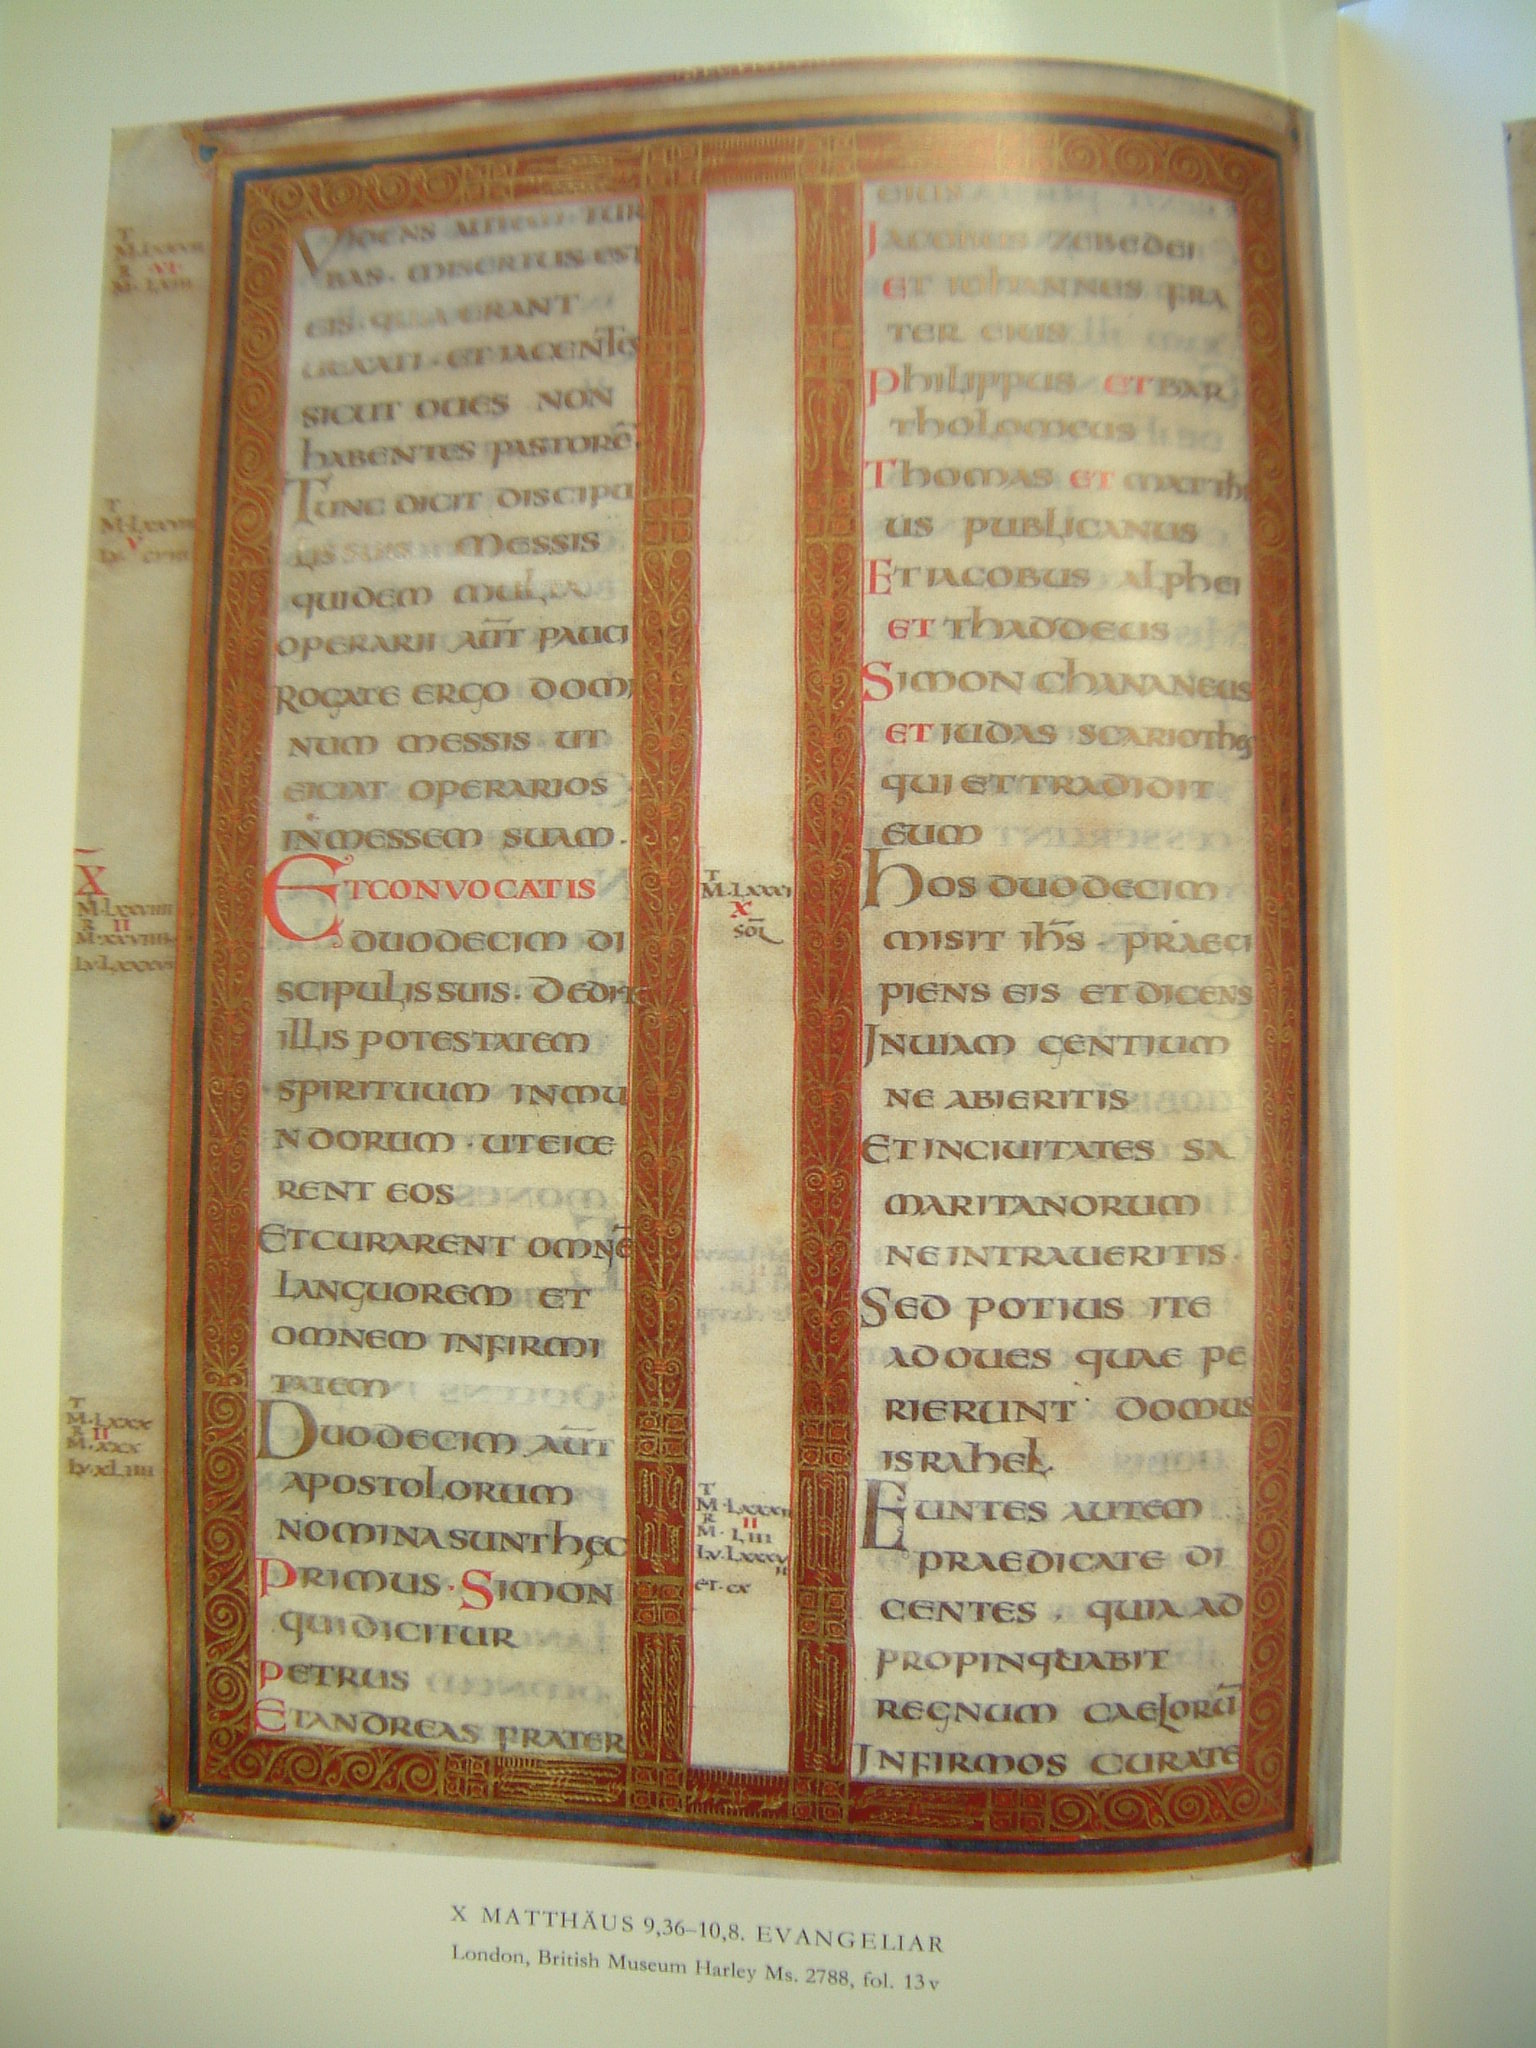 VIDENS AUTEM · TUR
BAS · MISERTUS EST
EIS · QUIA ERANT
UEXATI · ET IACENT̄S
SICUT OUES NON
hABENTES PASTORĒ
TUNC DICIT DISCIPU
LIS SUIS MESSIS
QUIDEM MULTA
OPERARII AŪT PAUCI
ROGATE ERGO DOMI
NUM MESSIS UT
EICIAT OPERARIOS
IN MESSEM SUAM ·
ET CONVOCATIS
DUODECIM DI
SCIPULIS SUIS · DEDIT
ILLIS POTESTATEM
SPIRITUUM INMU
NDORUM · UT EICE
RENT EOS
ET CURARENT OMNĒ
LANGUOREM ET
OMNEM INFIRMI
TATEM
DUODECIM AŪT
APOSTOLORUM
NOMINA SUNT hĘC
PRIMUS · SIMON
QUI DICITUR
PETRUS
ET ANDREAS FRATER
EIUS
IACOBUS ZEBEDEI
ET IOhANNES FRA
TER EIUS
PhILIPPUS ET BAR
ThOLOMEUS
ThOMAS ET MATThE
US PUBLICANUS
ET IACOBUS ALPhEI
ET ThADDEUS
SIMON ChANANEUS
ET IUDAS SCARIOThES
QUI ET TRADIDIT
EUM
hOS DUODECIM
MISIT IhS̄ · PRAECI
PIENS EIS ET DICENS
IN UIAM GENTIUM
NE ABIERITIS
ET IN CIUITATES SA
MARITANORUM
NE INTRAUERITIS ·
SED POTIUS ITE
AD OUES QUAE PE
RIERUNT DOMUS
ISRAhEL
EUNTES AUTEM
PRAEDICATE DI
CENTES · QUIA AD
PROPINQUABIT
REGNUM CAELORŪ
INFIRMOS CURATE
X̄
M·LXXVIIII
R II
M·XXVIIII
LV·LXXXVI
T
M·LXXX
R II
M·XXX
LV·XLIIII
T
M·LXXXI
X
SOL̄
T
M·LXXXII
R II
M·LIII
LV·LXXXV
II
ET·CX
X MATTHÄUS 9,36–10,8. EVANGELIAR
London, British Museum Harley Ms. 2788, fol. 13 v